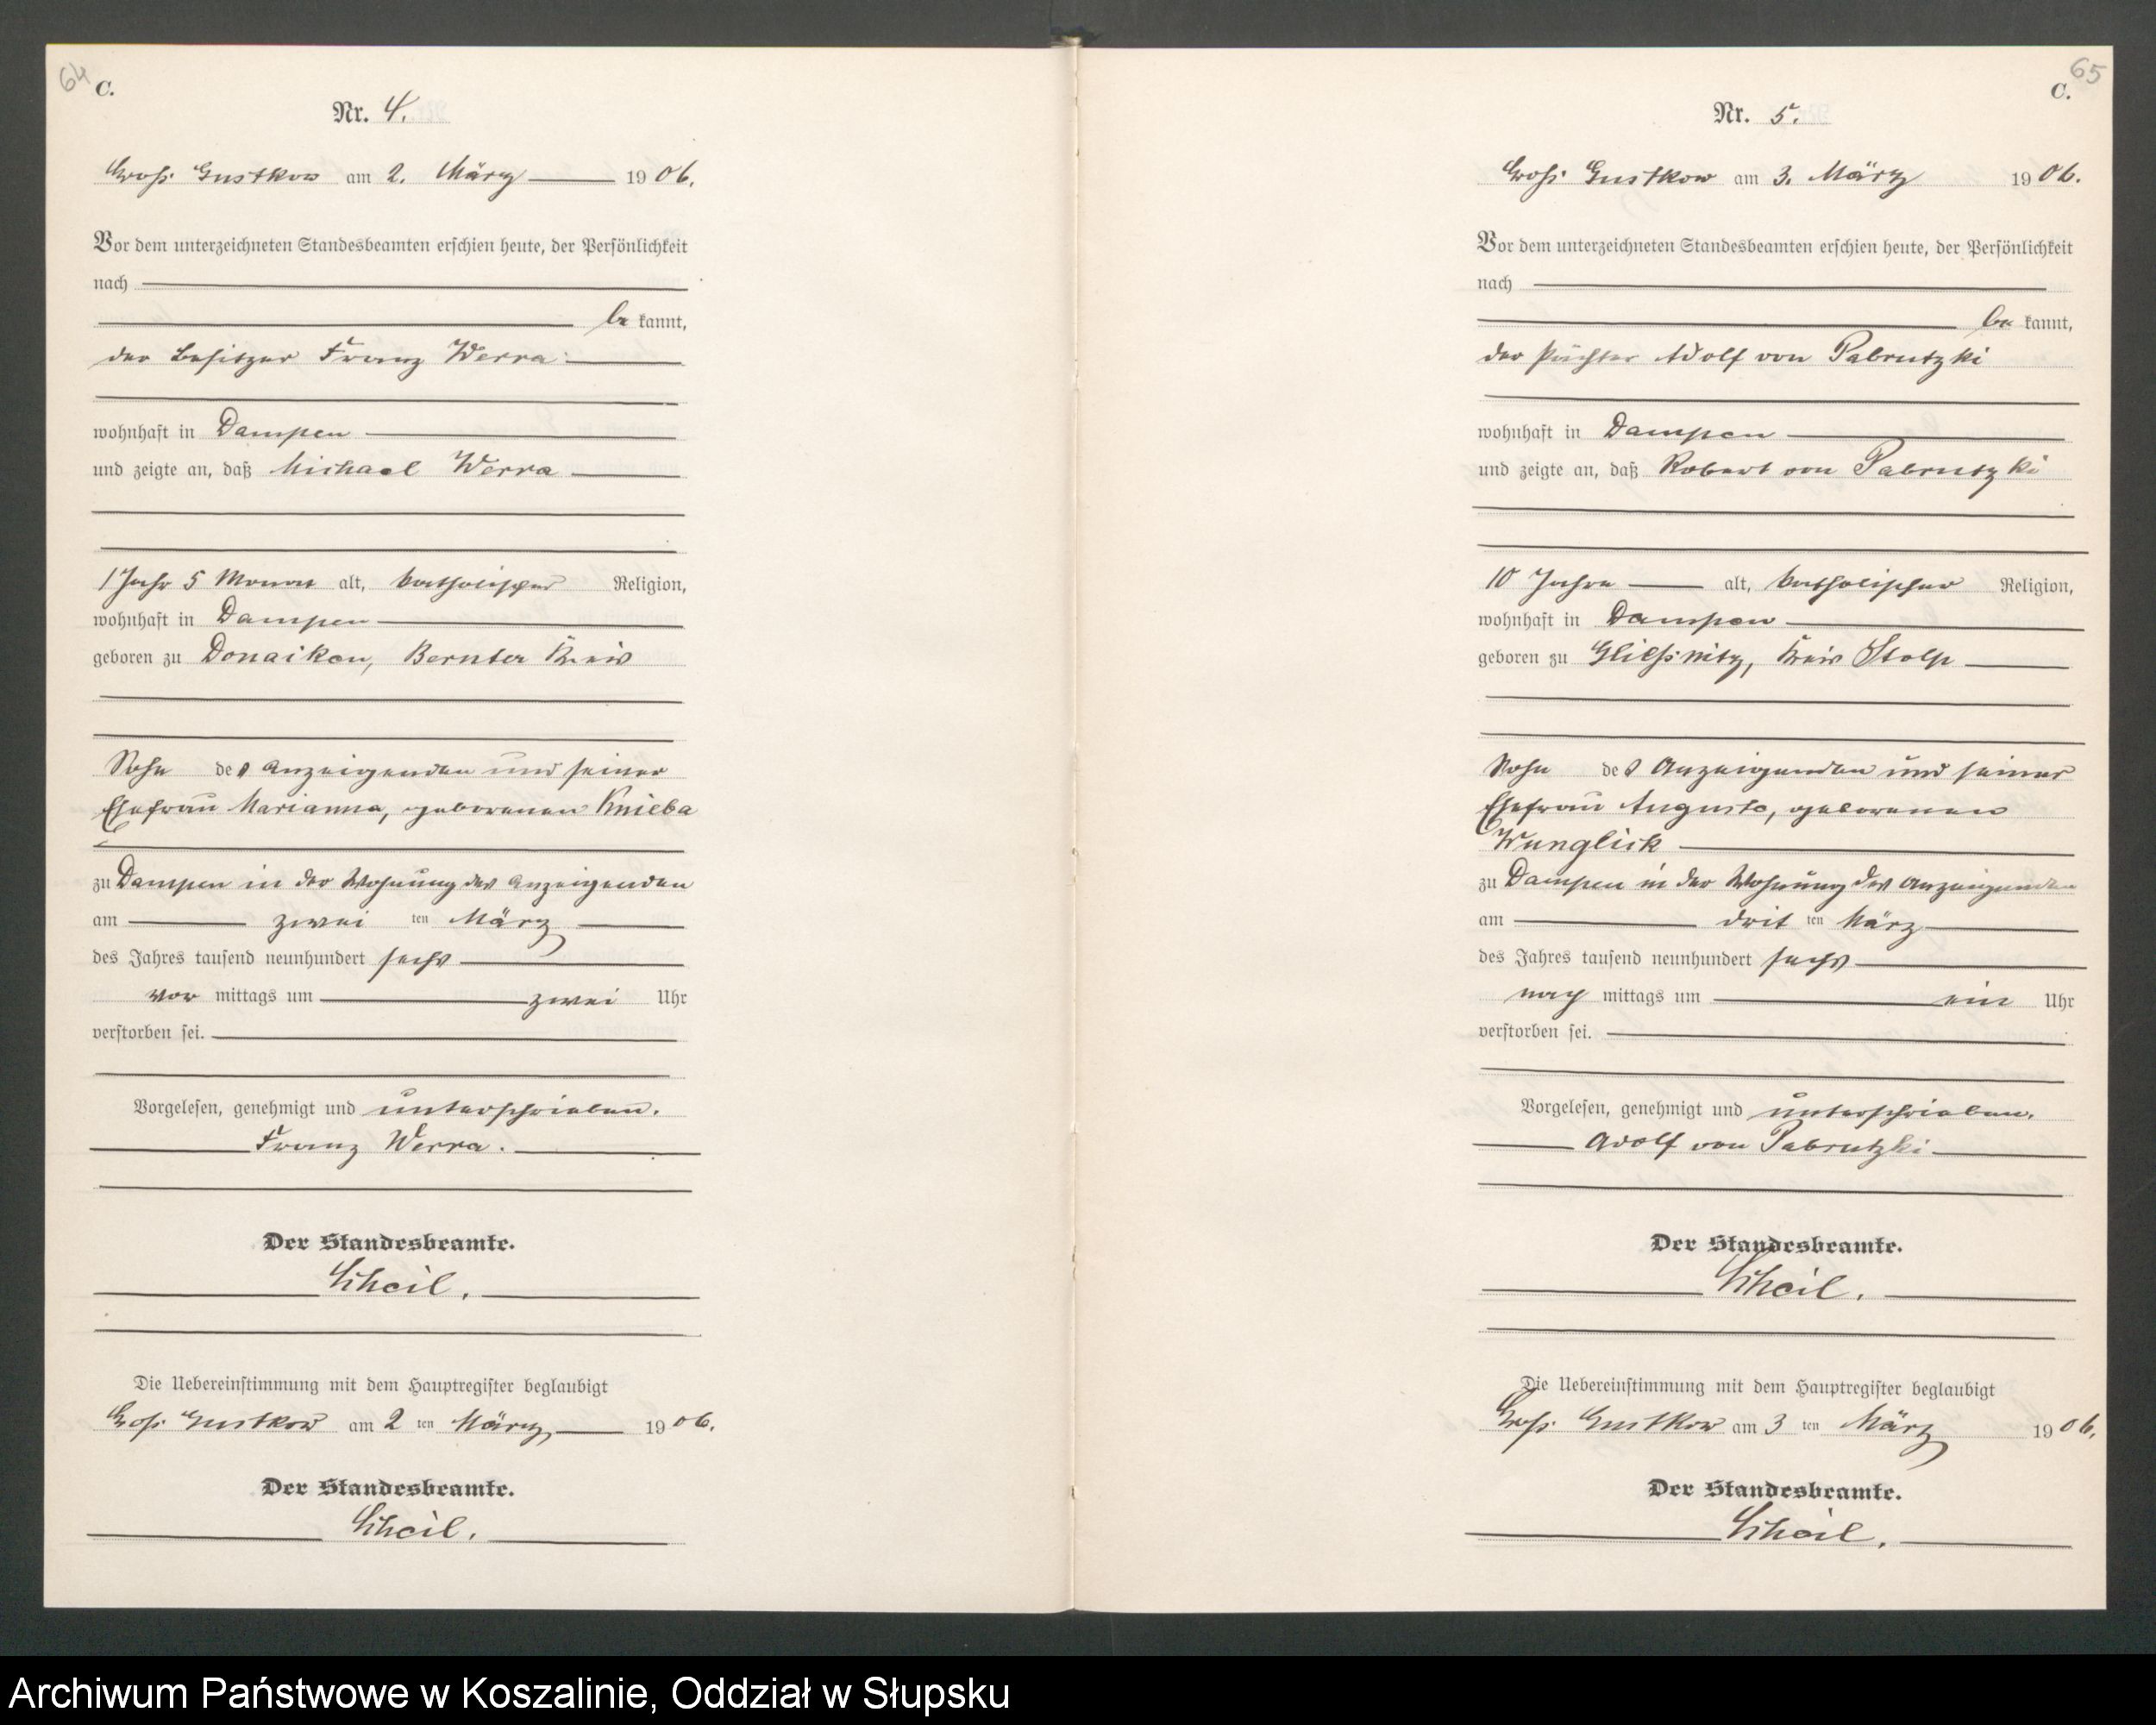 64
C.
Nr. 4.
Groß Gustkow am 2. März 1906.
Vor dem unterzeichneten Standesbeamten erschien heute, der Persönlichkeit
nach
be kannt,
der Besitzer Franz Werra
wohnhaft in Dampen
und zeigte an, daß Michael Werra
1 Jahr 5 Monat alt, katholischer Religion,
wohnhaft in Dampen
geboren zu Kreis
Sohn des Anzeigenden und seiner
Ehefrau Marianna, geborenen Knieba
zu Dampen in der Wohnung des Anzeigenden
am zwei ten März
des Jahres tausend neunhundert sechs
vor mittags um zwei Uhr
verstorben sei.
Vorgelesen, genehmigt und unterschrieben.
Franz Werra.
Der Standesbeamte.
Scheil.
Die Uebereinstimmung mit dem Hauptregister beglaubigt
Groß Gustkow am 2 ten März 1906.
Der Standesbeamte.
Scheil.
65
C.
Nr. 5.
Groß Gustkow am 3. März 1906.
Vor dem unterzeichneten Standesbeamten erschien heute, der Persönlichkeit
nach
be kannt,
der Pächter Adolf von Pabrutzki
wohnhaft in Dampen
und zeigte an, daß Robert von Pabrutzki
10 Jahre alt, katholischer Religion,
wohnhaft in Dampen
geboren zu Gließnitz, Kreis Stolp
Sohn des Anzeigenden und seiner
Ehefrau Auguste, geborenen
Wunglick
zu Dampen in der Wohnung des Anzeigenden
am drit ten März
des Jahres tausend neunhundert sechs
nach mittags um ein Uhr
verstorben sei.
Vorgelesen, genehmigt und unterschrieben.
Adolf von Pabrutzki
Der Standesbeamte.
Scheil.
Die Uebereinstimmung mit dem Hauptregister beglaubigt
Groß Gustkow am 3 ten März 1906.
Der Standesbeamte.
Scheil.
Archiwum Państwowe w Koszalinie, Oddział w Słupsku